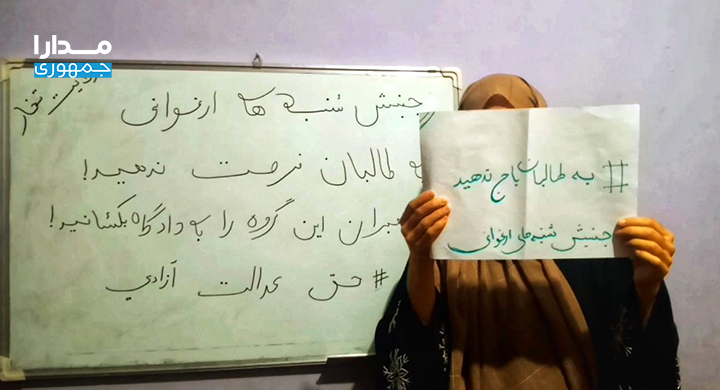 مدارا
جمهوری
تخار
جنبش شنبه ها ارغوانی
طالبان فرصت ندهید!
این گروه را به دادگاه بکشانید!
# حق عدالت آزادی
# به طالبان باج ندهید
جنبش شنبه های ارغوانی